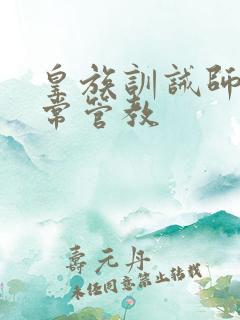 皇族訓誡師
常管教
壽元丹
未经同意禁止转载